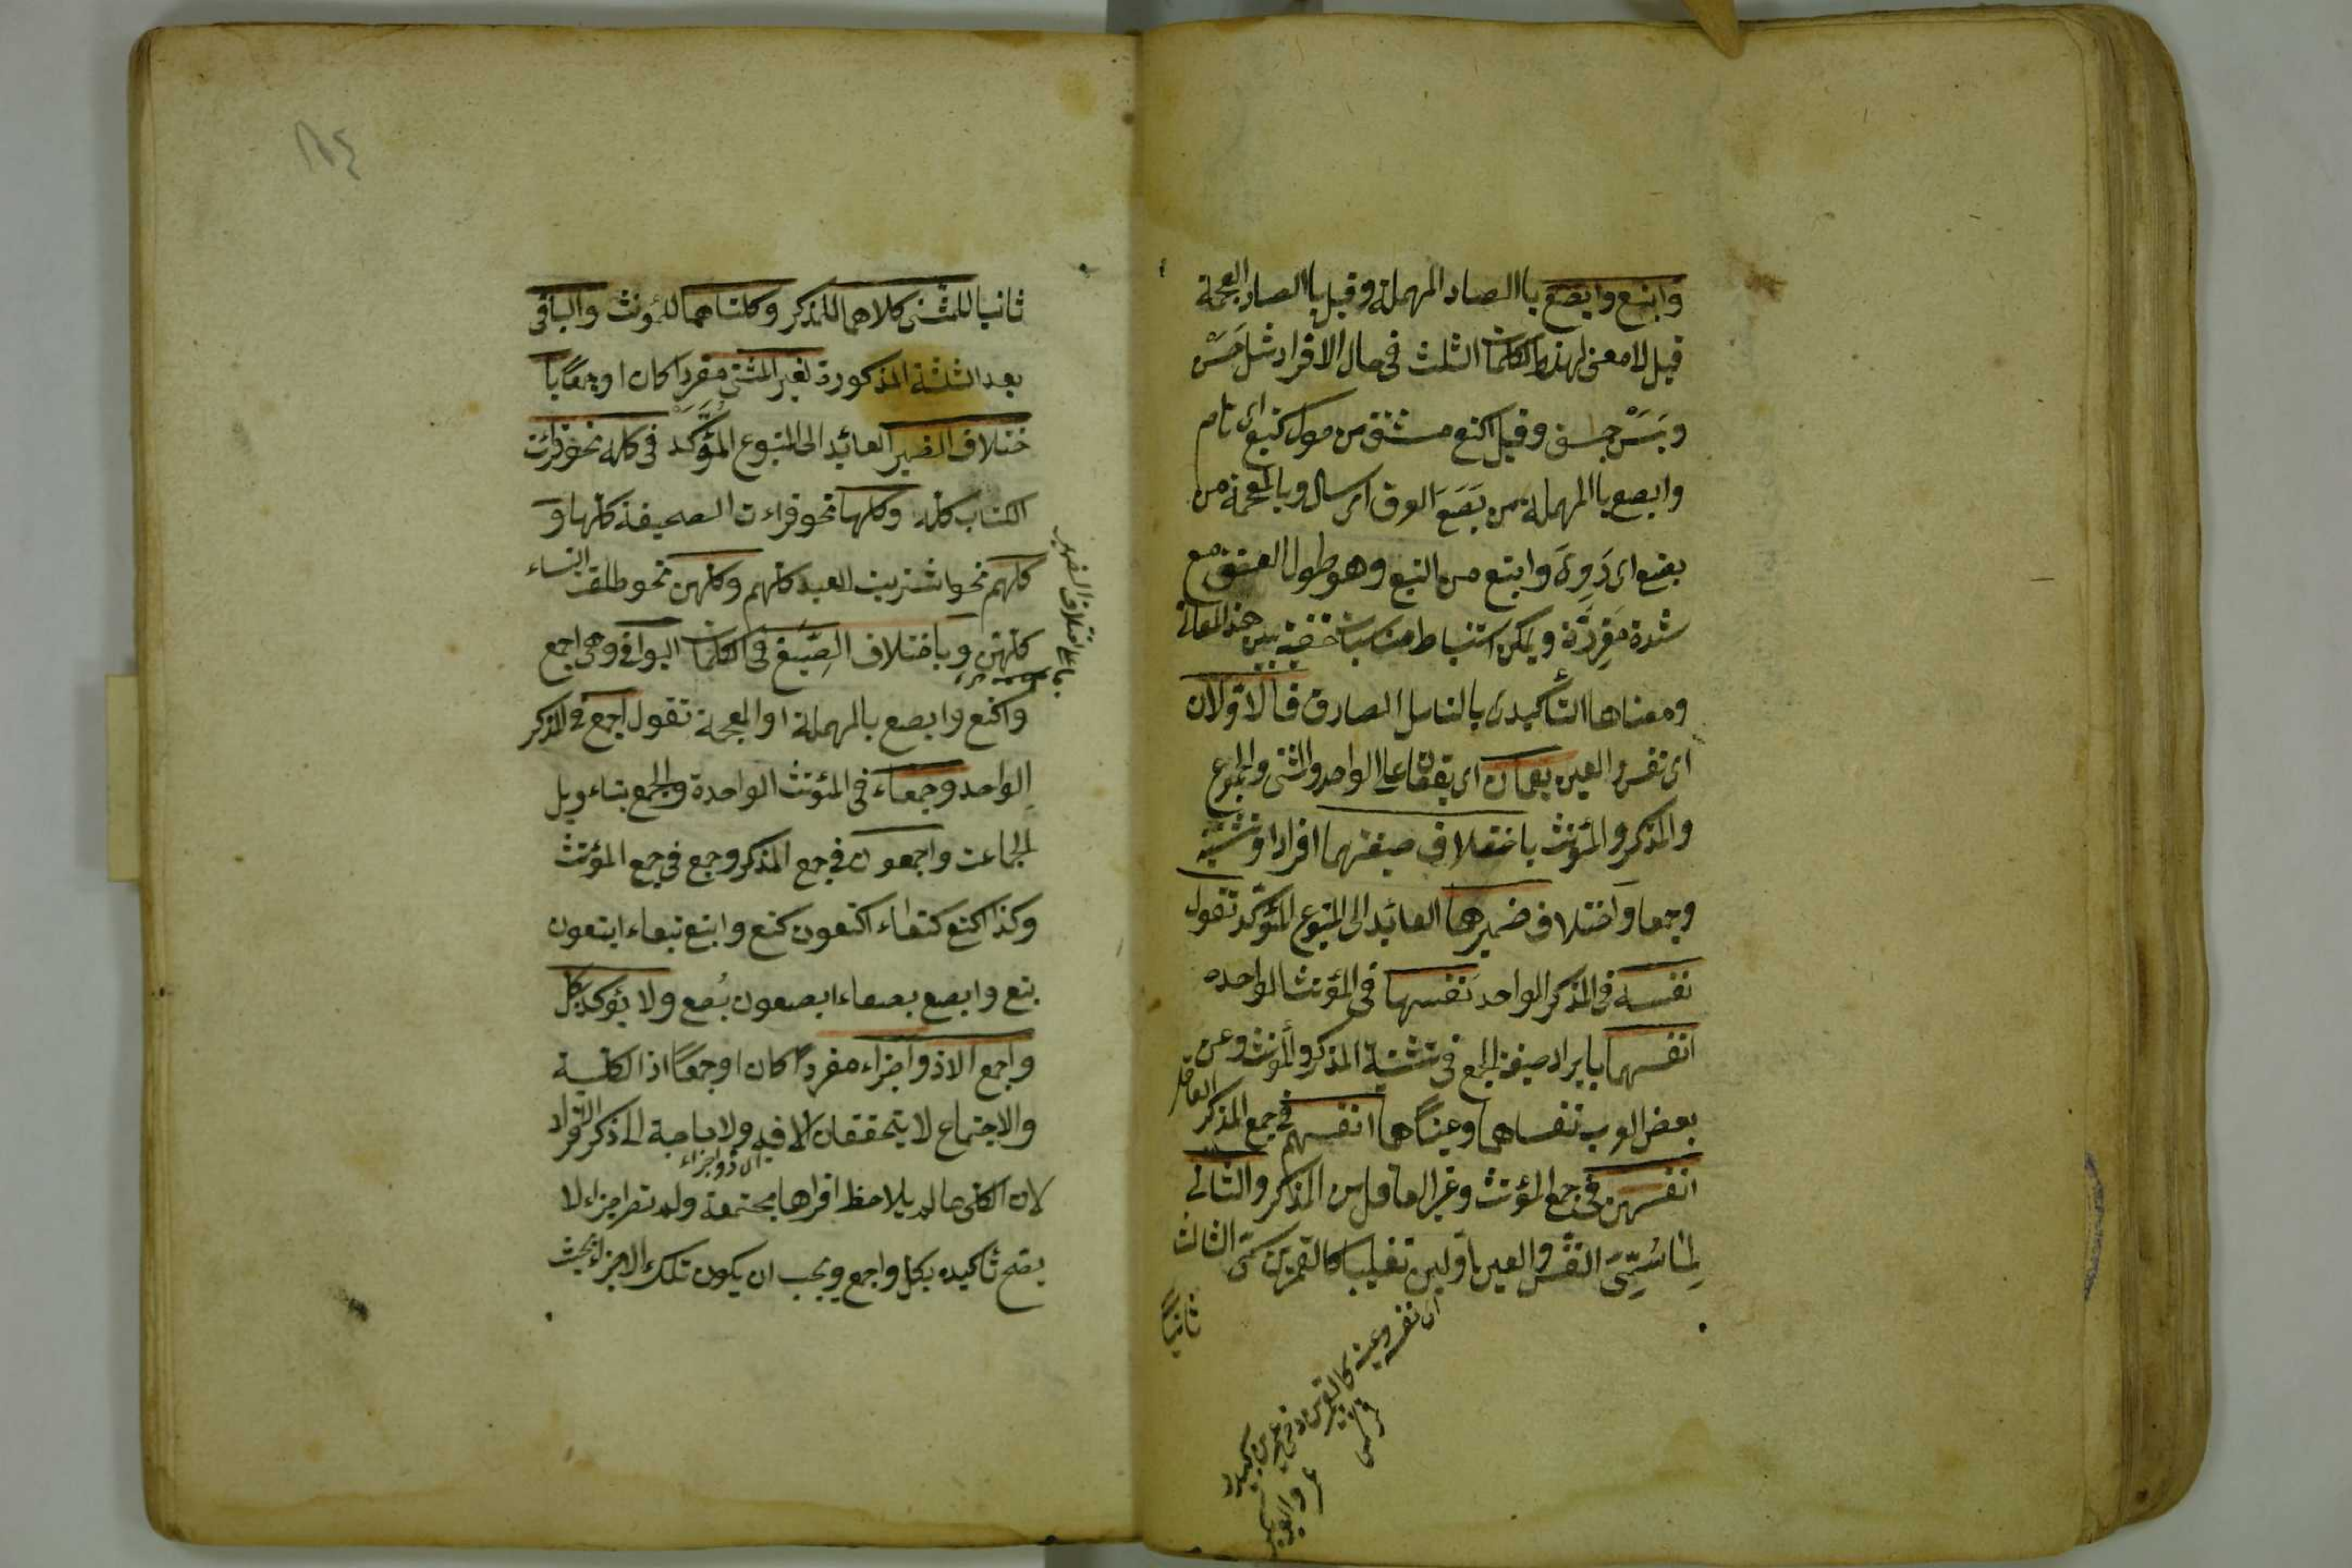 وابتع وابصع باالصاد المهملة وقيل باالضاد المعجمة
قيل لا معنى لهذه الكلمات الثلث في حال الافراد مثل حَسَنْ
وبَسَنْ وقيل اكتع مشتق من حول كتيع اى تام
وابصع باالمهملة من بَصَعَ العرق اى سال وبالمعجمة من
بضع اى رَوِىَ وابتع من التبع وهو طول العنق مع
شدة مغرزه ويمكن استنباط مناسبات خفية بين هذه المعانى
ومعناها التأكيدى بالتامل الصادق فالاولان
اى نفس والعين يعمان اى يقعان على الواحد والمثنى والمجموع
والمذكر والمؤنث باختلاف صيغتهما افرادا وتثنية
وجمعا واختلاف ضميرهما العائد الى المتبوع المؤكد تقول
نفسه فى المذكر الواحد نفسها فى المؤنث الواحده
انفسهما بايراد صيغة الجمع فى تثنية المذكر والمؤنث وعن
بعض العرب نفساهما وعيناهما انفسهم فى جمع المذكر العاقل
انفسهن فى جمع المؤنث وغير العاقل من المذكر والثانى
لما سُمِّىَ النفس والعين اولين تغليبا كالقمرين سمى الثالث
ثانيًا
اى نفسه وعينه كالقمرين
ثانيا للمثنى كلاهما للمذكر وكلتاهما للمؤنث والباقى
بعد الثلثة المذكورة لغير المثنى مفردا كان او جمعًا با
ختلاف الضمير العائد الى المتبوع المؤَكَّد فى كله نحو قرأت
الكتاب كله وكلها نحو قراءت الصحيفة كلها و
كلهم نحو اشتريت العبيد كلهم وكلهن نحو طلقت النساء
كلهن وباختلاف الصِّيَغِ فى الكلمات البواقى وهى اجمع
واكتع وابصع بالمهملة او المعجمة تقول اجمع فى المذكر
الواحد وجمعاء فى المؤنث الواحدة والجمع بتاءويل
الجماعت واجمعون فى جمع المذكر وجمع فى جمع المؤنث
وكذا اكتع كتعاء اكتعون كتع وابتع بتعاء ابتعون
بتع وابصع بصعاء ابصعون بُصع ولا يؤكد بكل
واجمع الا ذو اجزاء مفردًا كان او جمعًا اذ الكلية
والاجتماع لا يتحققان الا فيه ولا حاجة الى ذكر الافراد
اى ذو اجزاء
لان الكلى ما لم يلاحظ افرادها مجتمعة ولم تصر اجزاء لا
يصح تاكيده بكل واجمع ويجب ان يكون تلك الاجزاء بحيث
باعلى اختلاف الضمير
١٨٤